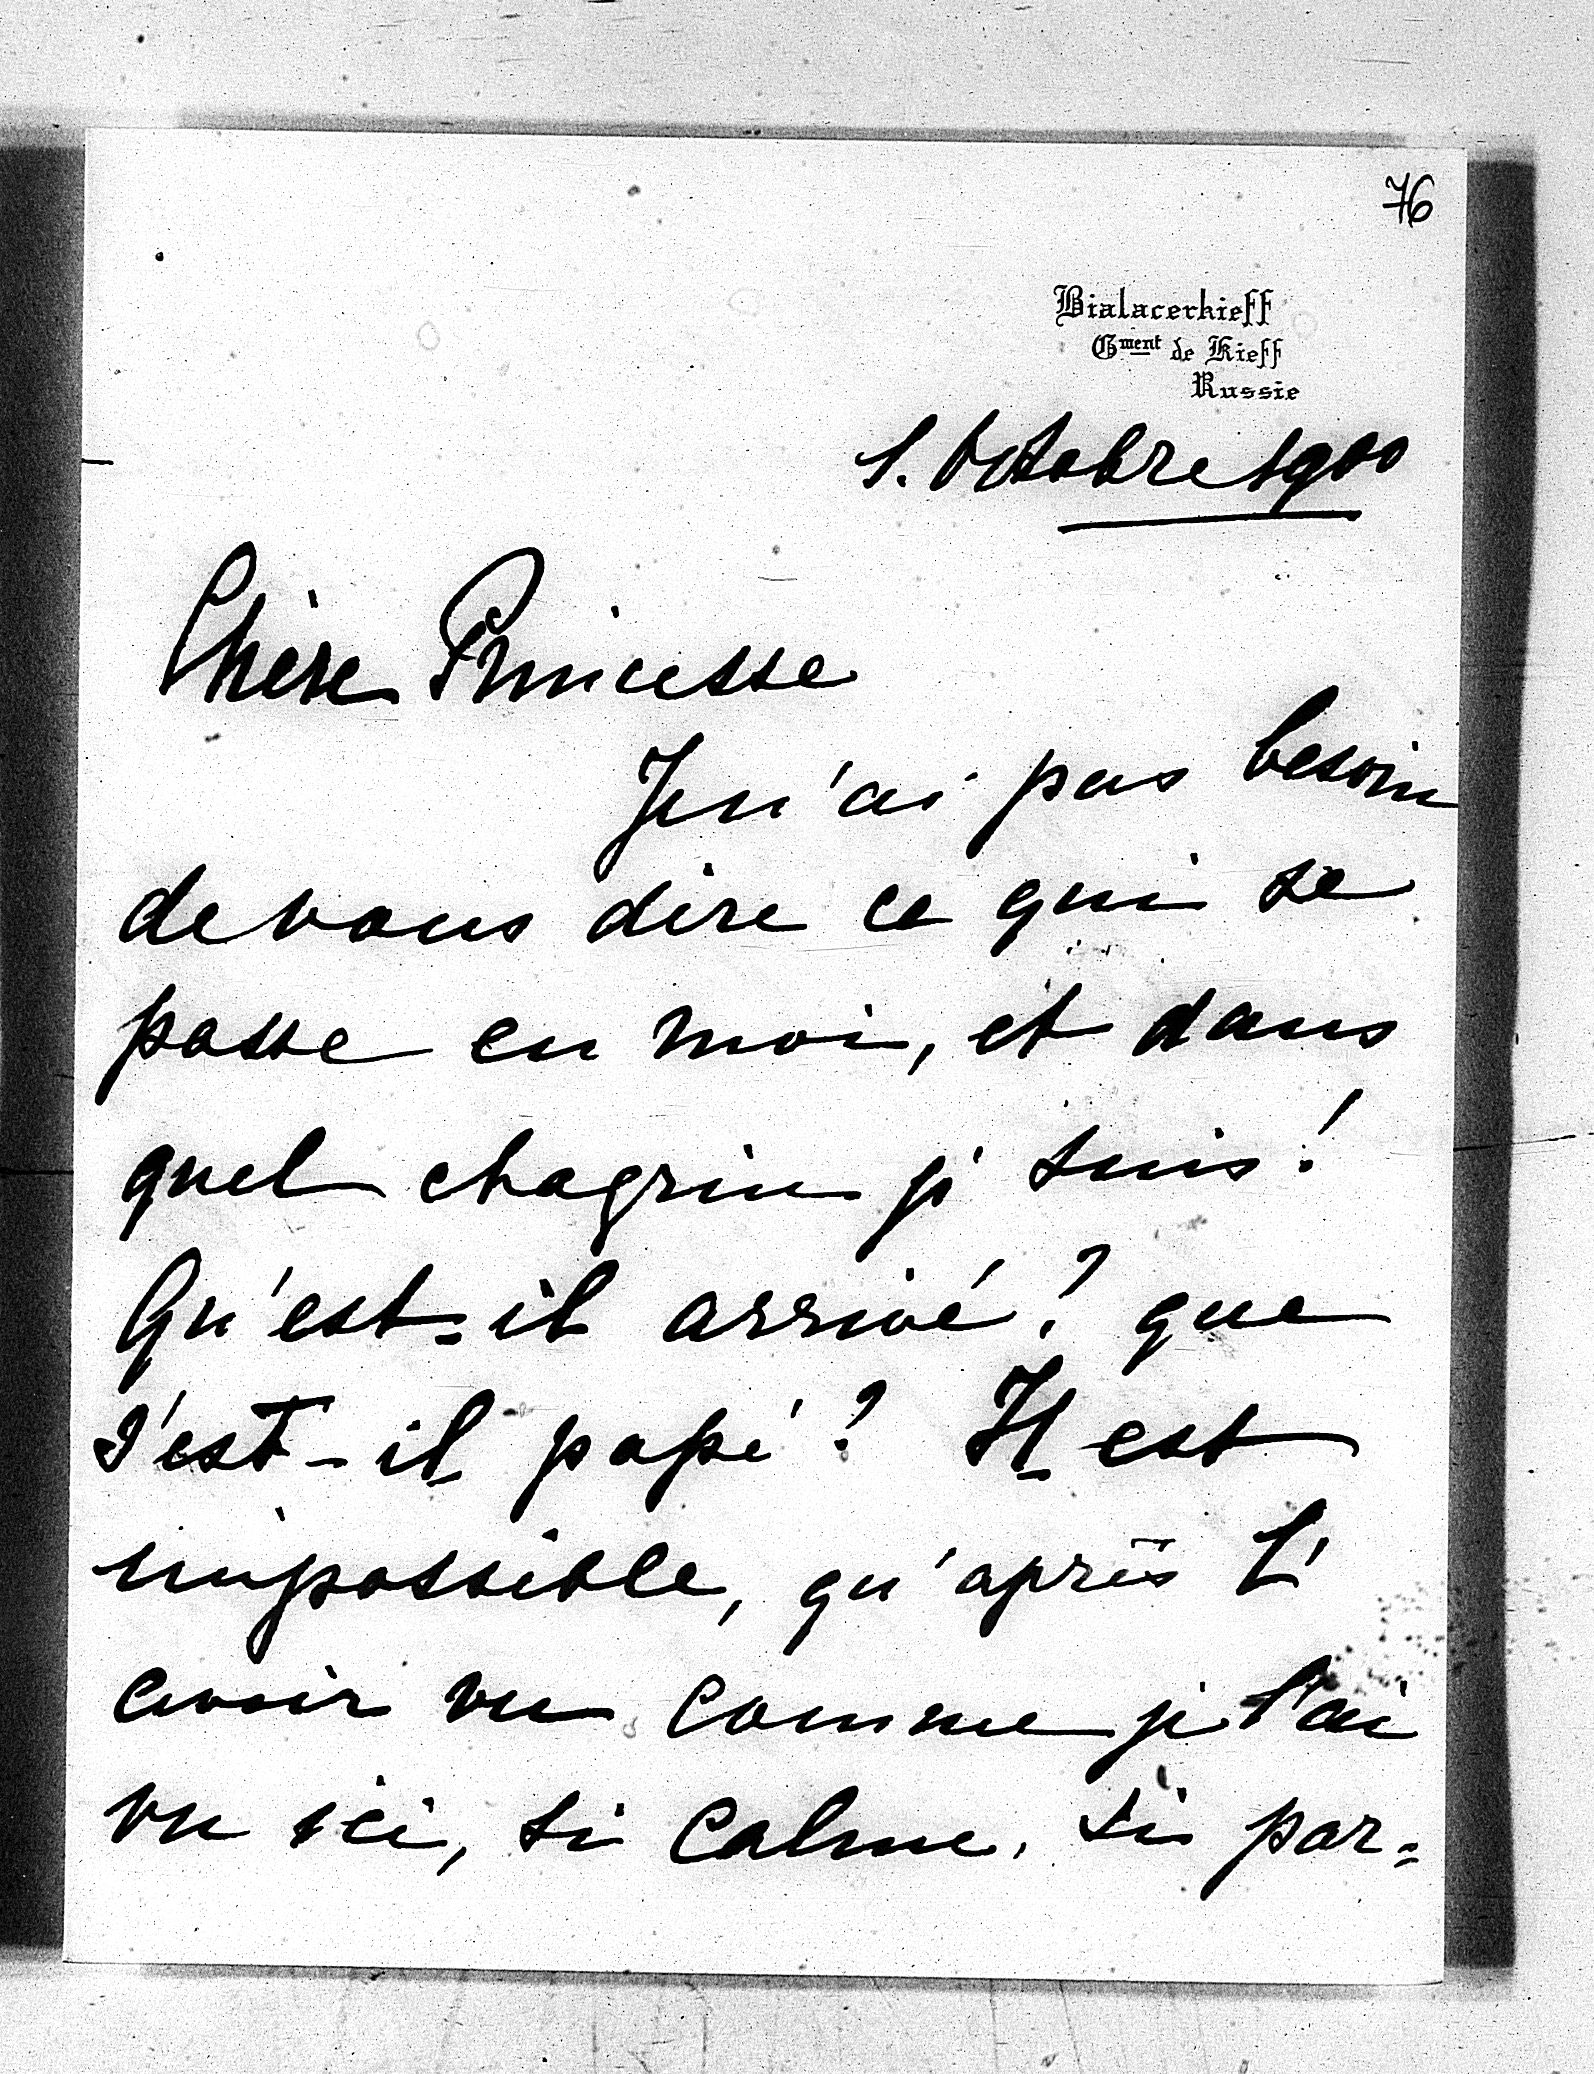 76
Bialacerkieff
Gment de Kieff
Russie
1. Octobre 1900
Chère Princesse
Je n'ai pas besoin
de vous dire ce qui se
passe en moi, et dans
quel chagrin je suis!
Qu'est-il arrivé? que
s'est-il passé? Il est
impossible, qu'après l'
avoir vu comme je l'ai
vu ici, si calme, si par=